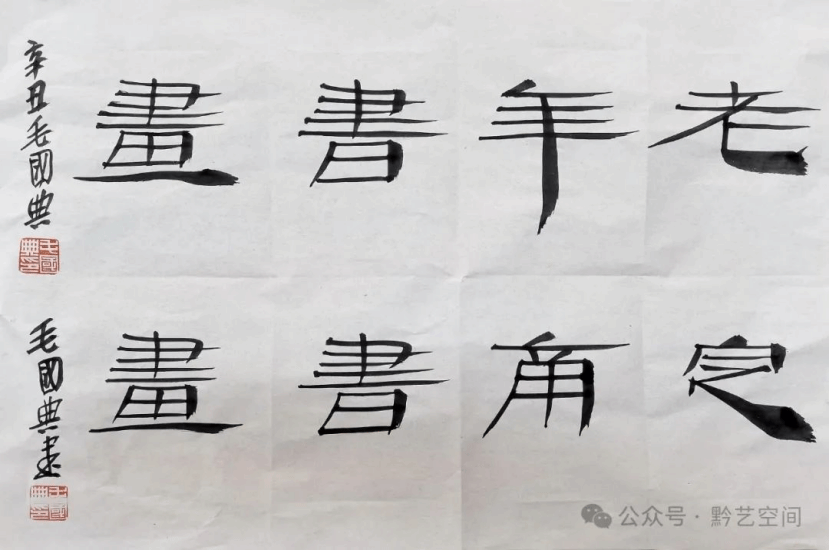 老年書畫
辛丑毛國典
毛國典印
角書畫
毛國典書
毛國典印
公众号·黔艺空间